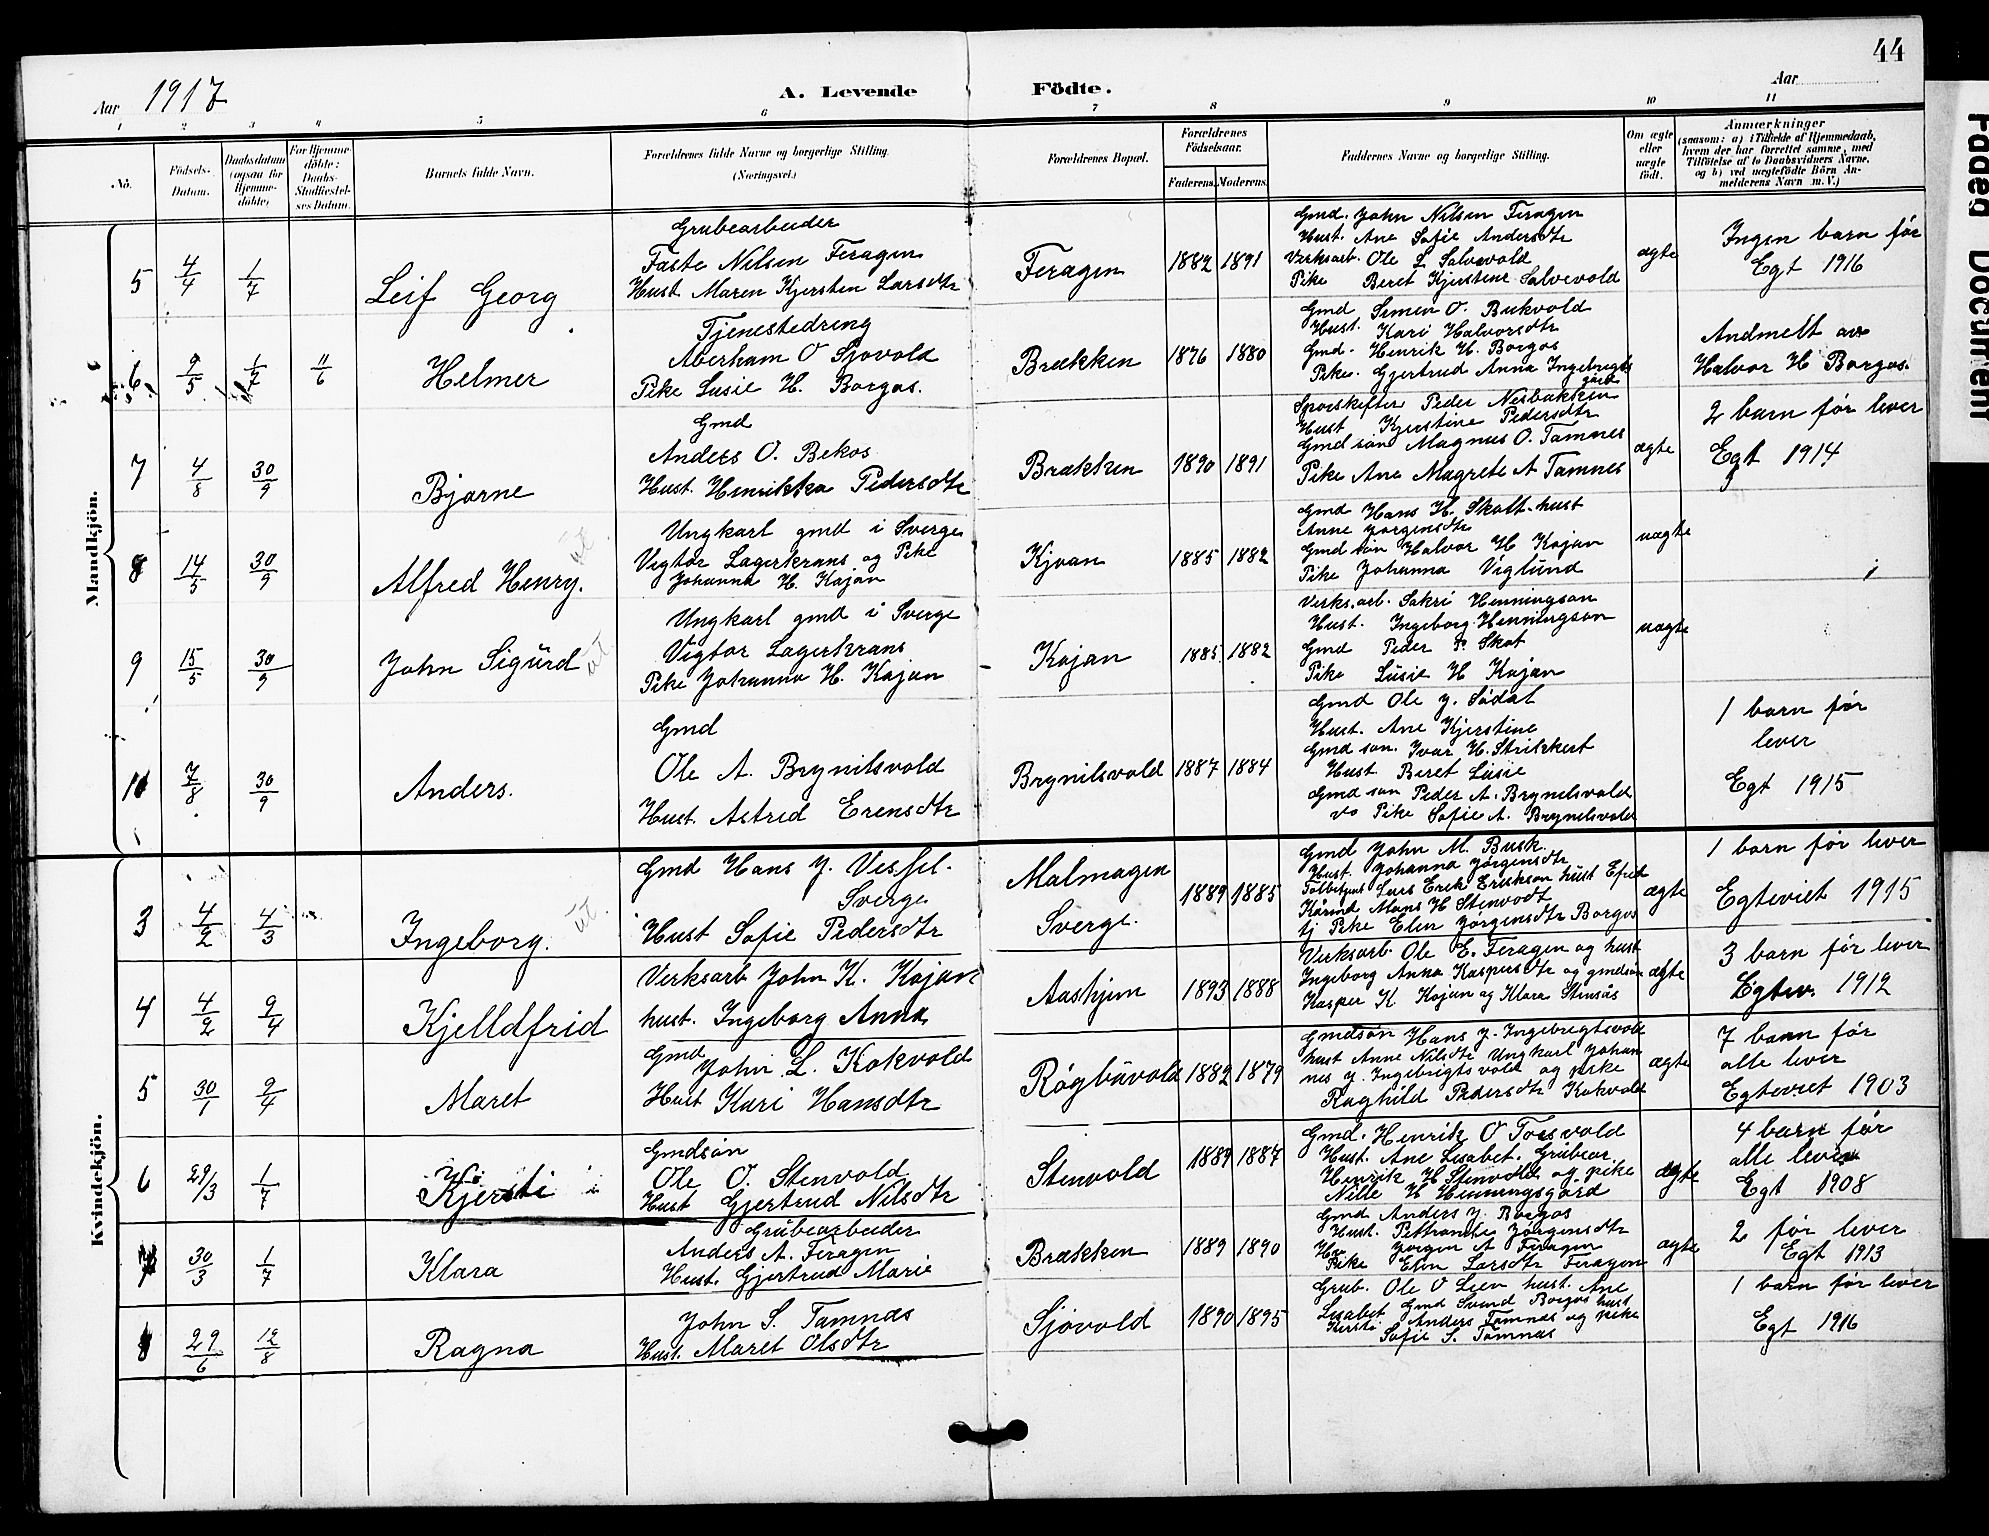 44
Aar 1917 A. Levende Födte. Aar
1 2 3 4 5 6 7 8 9 10 11
No.
Födsels-Datum.
Daabsdatum (ogsaa for Hjemme-döbte)
For Hjemme-döbte: Daabs-Stadfæstel-ses Datum.
Barnets fulde Navn.
Forældrenes fulde Navne og borgerlige Stilling. (Næringsvei.)
Forældrenes Bopæl.
Forældrenes Födselsaar.
Faderens. Moderens.
Faddernes Navne og borgerlige Stilling.
Om ægte eller uægte födt.
Anmærkninger
(saasom: a) i Tilfælde af Hjemmedaab, hvem der har forrettet samme, med Tilföielse af to Daabsvidners Navne, og b) ved uægtefödte Börn An-melderens Navn m. V.)
Mandkjön.
5 4/4 1/7 Leif Georg
Grubearbeider
Faste Nilsen Feragen
Hust Maren Kjersten Larsdtr
Feragen 1882 1891
Gmd. John Nilsen Feragen
Hust. Ane Sofie Andersdtr
Verksarb. Ole L Solvold
Pike Beret Kjerstine Solvevold
ægte
Ingen barn før
Egt 1916
6 9/5 1/7 11/6 Helmer
Tjenestedreng
Aberham O Sjovold
Pike Lusie H. Borgos.
Brækken 1876 1880
Gmd Simen O. Bukvold
Hust. Kari Halvorsdtr
Gmd. Henrik H. Borgos
Pike. Gjertrud Anna Ingebregts
gård
Andmelt av
Halvor H Borgos.
7 4/8 30/9 Bjarne
Gmd
Anders O. Bekos
Hust. Henrikka Pedersdtr
Brækken 1890 1891
Sporskifter Peder Nesbakken
Hust Kjerstine Pedersdtr
Gmd søn Magnus O. Tamnes
Pike Ane Magrete A Tamnes
ægte
2 barn før lever
Egt 1914
8 14/5 30/9 Alfred Henry. ut.
Ungkarl gmd i Sverge
Vigtor Lagerkrans og Pike
Johanna H. Kojan
Kjoan 1885 1882
Gmd Hans H. Skott. hust
Anne Jørgensdtr
Gmd søn Halvor H Kojan
Pike Johanna Viglund
uægte
9 15/5 30/9 John Sigurd ut
Ungkarl gmd i Sverge
Vigtor Lagerkrans
Pike Johanna H. Kojan
Kojan 1885 1882
Verks.arb. Sakri Henningson
Hust. Ingeborg Henningson
Gmd Peder P. Skot
Pike Lusie H Kojan
uægte
10 7/8 30/9 Anders.
Gmd
Ole A. Brynilsvold
Hust. Astrid Erensdtr
Brynilsvold 1887 1884
Gmd Ole J. Sødal
Hust. Ane Kjerstine
Gmd søn. Ivar H. Strikkert
Hust Beret Lusie
Gmd søn Peder A. Brynilsvold
vo Pike Sofie A. Brynilsvold
1 barn før
lever
Egt 1915
Kvindekjön.
3 4/2 4/3 Ingeborg. ut.
Gmd Hans J. Vessel.
Sverge
Hust Sofie Pedersdtr
Malmagen
Sverge. 1889 1885
Gmd John M. Busk.
Hust. Johanna Jørgensdtr
Lars Erik Erikson hust
Mons H Stenvodt
tj Pike Elen Jørgensdtr Borgos
ægte
1 barn før lever
Egteviet 1915
4 4/2 9/4 Kjelldfrid
Verksarb John K. Kojan
hust. Ingeborg Anna
Aashjem 1893 1888
Verksarb. Ole E. Feragen og hust
Ingeborg Anna Kaspersdtr og gmdsøn
Kasper K Kojan og Klara Stensås
ægte
3 barn før lever
Egtev. 1912
5 30/1 9/4 Maret
Gmd
John L. Kokvold
Hust Kari Hansdtr
Røgbuvold 1882 1879
Gmdsøn Hans J. Ingebregtsvold
hust Anne Nilsdtr Ungkarl Johan
nes J. Ingebrigtsvold og pike
Raghild Pedersdtr Kokvold
ægte
7 barn før
alle lever
Egteviet 1903
6 29/3 1/7 Kjersti
Gmdsøn
Ole O. Stenvold
Hust Gjertrud Nilsdtr
Stenvold 1889 1887
Gmd. Henrik O Torsvold
Hust. Ane Lisabet. Grubear.
Henrik H Stenvold og pike
Nille H Henningsgård
ægte
4 barn før
alle lever
Egt 1908
7 30/3 1/7 Klara
Grubearbeider
Anders A. Feragen
Hust. Gjertrud Marie
Brækken 1889 1890
Gmd Anders J. Borgos
Hust. Jørgensdtr
Jørgen A Feragen
Pike Elen Larsdtr Feragen
ægte
2 før lever
Egt 1913
8 29/6 12/8 Ragna
John S. Tamnas
Hust. Maret Olsdtr
Sjøvold 1890 1895
Grub. Ole O Lien hust. Ane
Lisabet Gmd Svend Borgos hust
Kirsti Anders Tamnas og pike
Sofie S. Tamnas
1 barn før lever
Egt 1916
Faded Document